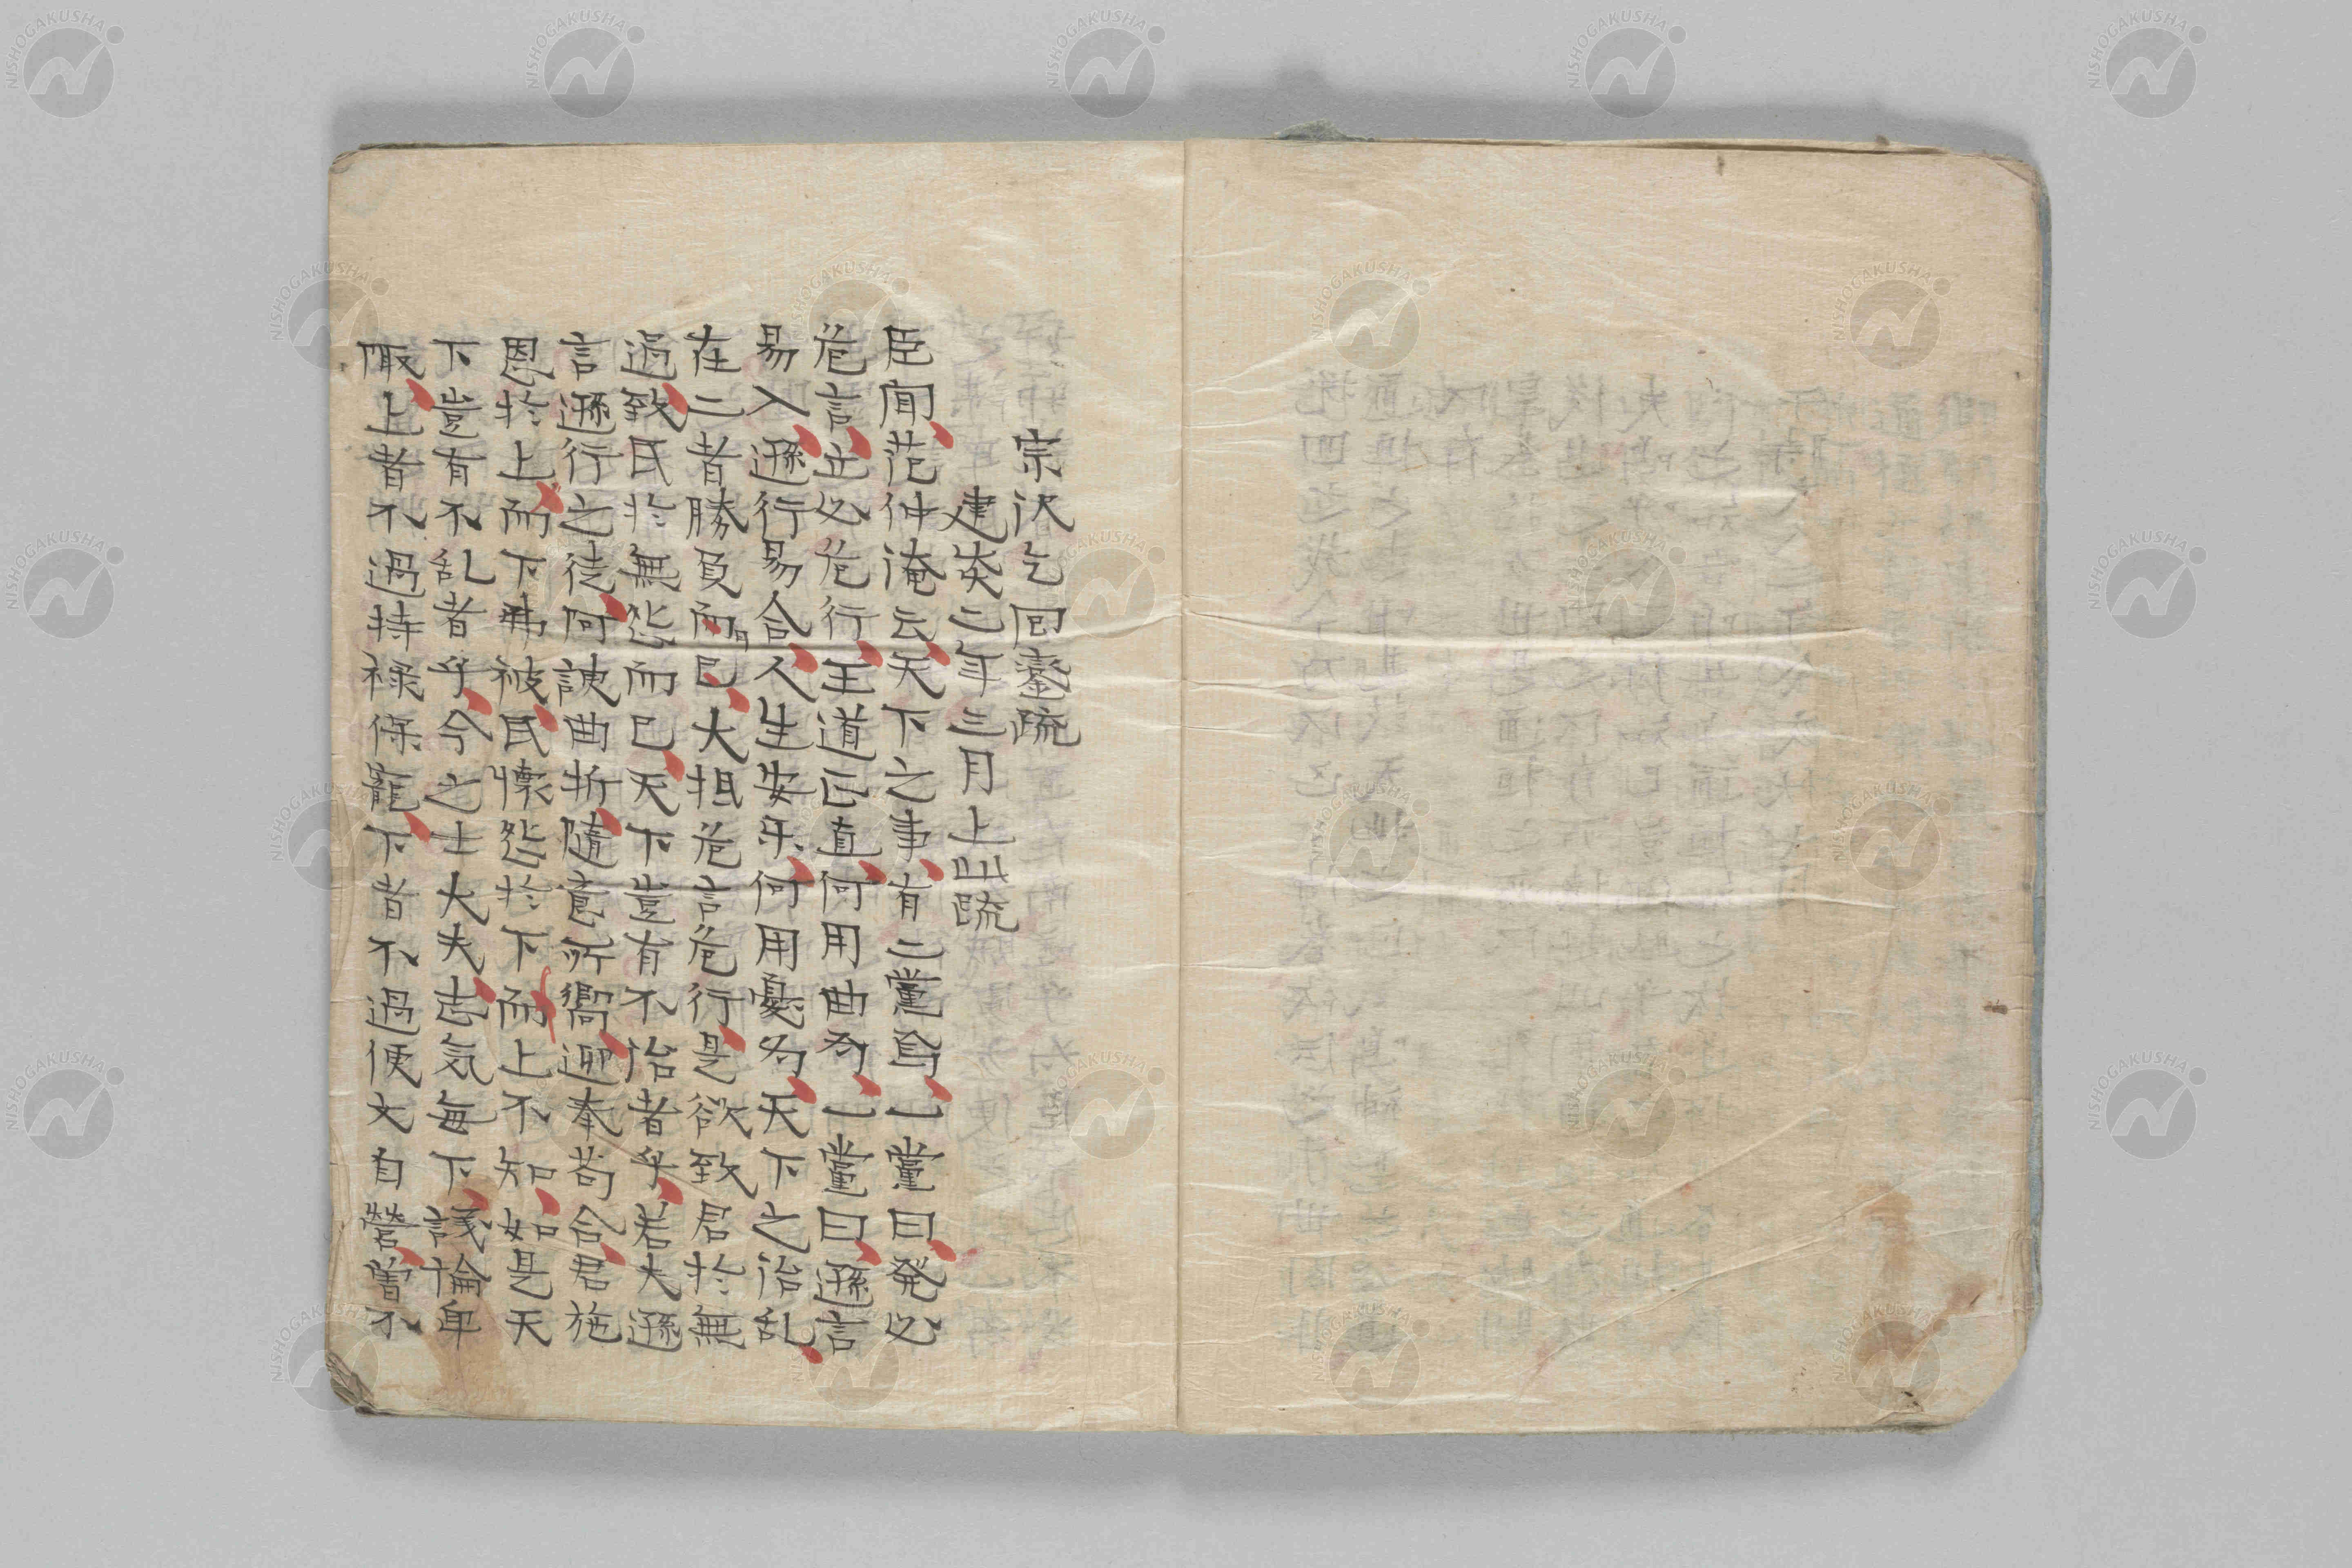 宗汱乞回鑾疏
建炎二年三月上此疏
臣聞范仲淹云天下之事有二黨焉一黨曰発必
危言立必危行王道正直何用曲为一黨曰遜言
易入遜行易合人生安乐何用憂为天下之治乱
在二者勝負而已大抵危言危行是欲致君於無
過致民於無怨而已天下豈有不治者乎若夫遜
言遜行之徒阿諛曲折隨意所嚮迎奉苟合君施
恩於上而下弗被民懷怨於下而上不知如是天
下豈有不乱者乎今之士大夫志気每下議論卑
陬上者不過持禄保寵下者不過便文自營曽不
NISHOGAKUSHA